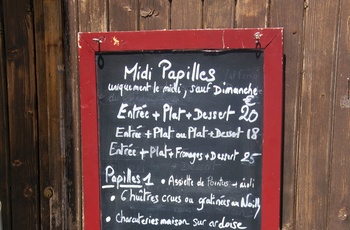 Midi Papilles
uniquement le midi, sauf Dimanche
€
Entrée + Plat + Dessert 20
Entrée + Plat ou Plat + Dessert 18
Entrée + Plat + Fromages + Dessert 25
Papilles 1 • Assiette de → aioli
• 6 huîtres crues ou gratinées au Noilly
• charcuteries maison sur ardoise